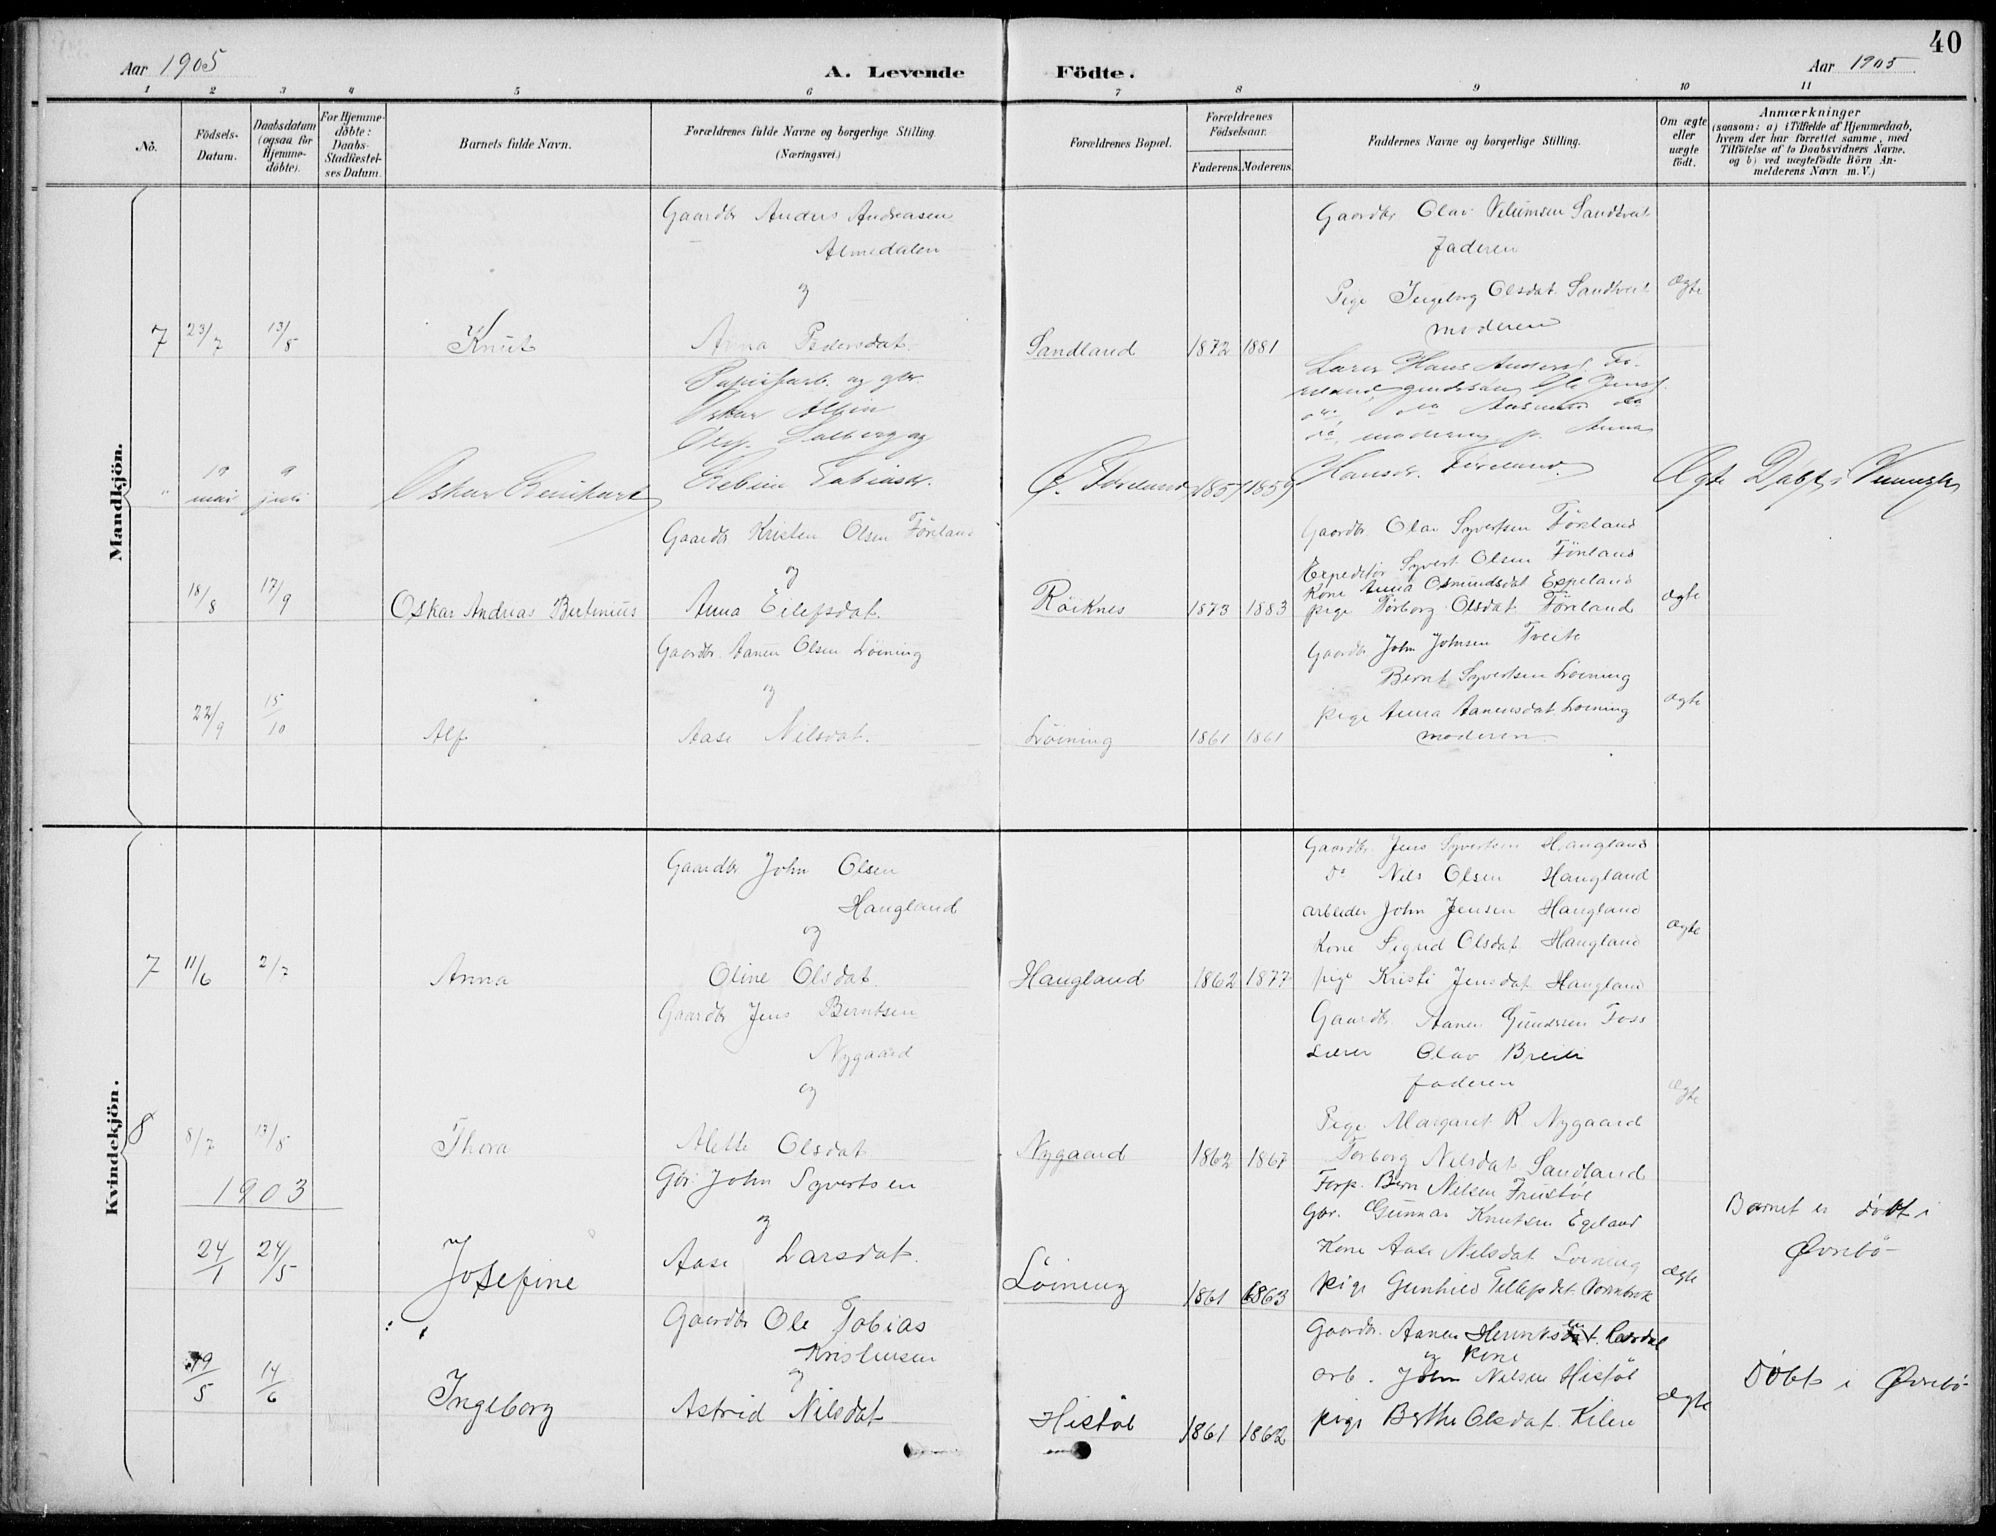 40
Aar 1905 A. Levende Födte. Aar 1905
1 2 3 4 5 6 7 8 9 10 11
No.
Födsels-Datum.
Daabsdatum (ogsaa for Hjemmedöbte).
For Hjemmedöbte: Daabs-Stadfæstelses Datum.
Barnets fulde Navn.
Forældrenes fulde Navne og borgerlige Stilling.
(Næringsvei.)
Forældrenes Bopæl.
Forældrenes Födselsaar.
Faderens. Moderens.
Faddernes Navne og borgerlige Stilling.
Om ægte eller uægte födt.
Anmærkninger
(saasom: a) i Tilfælde af Hjemmedaab,
hvem der har forrettet samme, med
Tilföielse af to Daabsvidners Navne.
og b) ved uægtefödte Börn An-
melderens Navn m. V.)
Mandkjön.
7 23/7 13/8 Knut
Gaardbr Anders Andreasen
Almedalen
og
Anna Pedersdat.
Sandland 1872 1881
Gaardbr Olav Sandtveit
faderen
Pige Ingeborg Olsdat. Sandtveit
moderen
ægte
" 19 mai 9 juli Oskar
og gbr.
Oskar
og
Tobiasdr.
Ø. Föreland 1857 1859
Lærer Hans
moderen, p. Anna
Hansdr. Föreland.
Ægte Döbt i Vennesla
18/8 17/9 Oskar Andreas Bertinius
Gaardbr Kristen Olsen Föreland
og
Anna Eilefsdat.
Röiknes 1873 1883
Gaardbr Olav Syvertsen Föreland
Expeditör Syvert Olsen Föreland
Kone Anna Osmundsdat Espeland
pige Torborg Olsdat. Föreland
ægte
22/9 15/10 Alf
Gaardbr. Aanen Olsen Löining
og
Aase Nilsdat.
Löining 1861 1861
Gaardbr John Johnsen Tveite
Bernt Syvertsen Löining
pige Anna Aanensdat. Löining
moderen
ægte
Kvindekjön.
7 11/6 2/7 Anna
Gaardbr John Olsen
Haugland
og
Oline Olsdat.
Haugland 1862 1877
Gaardbr. Jens Syvertsen Haugland
do Nils Olsen Haugland
arbeider John Jensen Haugland
Kone Sigrid Olsdat. Haugland
pige Kristi Jensdat Haugland
ægte
8 8/7 13/8 Thora
Gaardbr Jens Berntsen
Nygaard
og
Mette Olsdat
Nygaard 1862 1867
Gaardbr Aanen Gundersen Foss
Lærer Olav Breili
faderen
Pige Margaret R Nygaard
Torborg Nilsdat. Sandland
ægte
1903
24/1 24/5 Josefine
Gbr John Syvertsen
og
Aase Larsdat.
Löining 1861 1863
Forp. Bern Nilsen Frustøl
Gbr. Gunnar Knutsen Egeland
Kone Aase Nilsdat Löining
pige Gunhild Tellefsdat.
ægte
Barnet er döbt i
Øvrebö
19/5 14/6 Ingeborg
Gaardbr Ole Tobias
Kristensen
og
Astrid Nilsdat
Histøl 1861 1862
Gaardbr. Aanen
og kone
arb. John Nilsen Histøl
pige Berthe Olsdat. Kilen
ægte
Döbt i Øvrebö